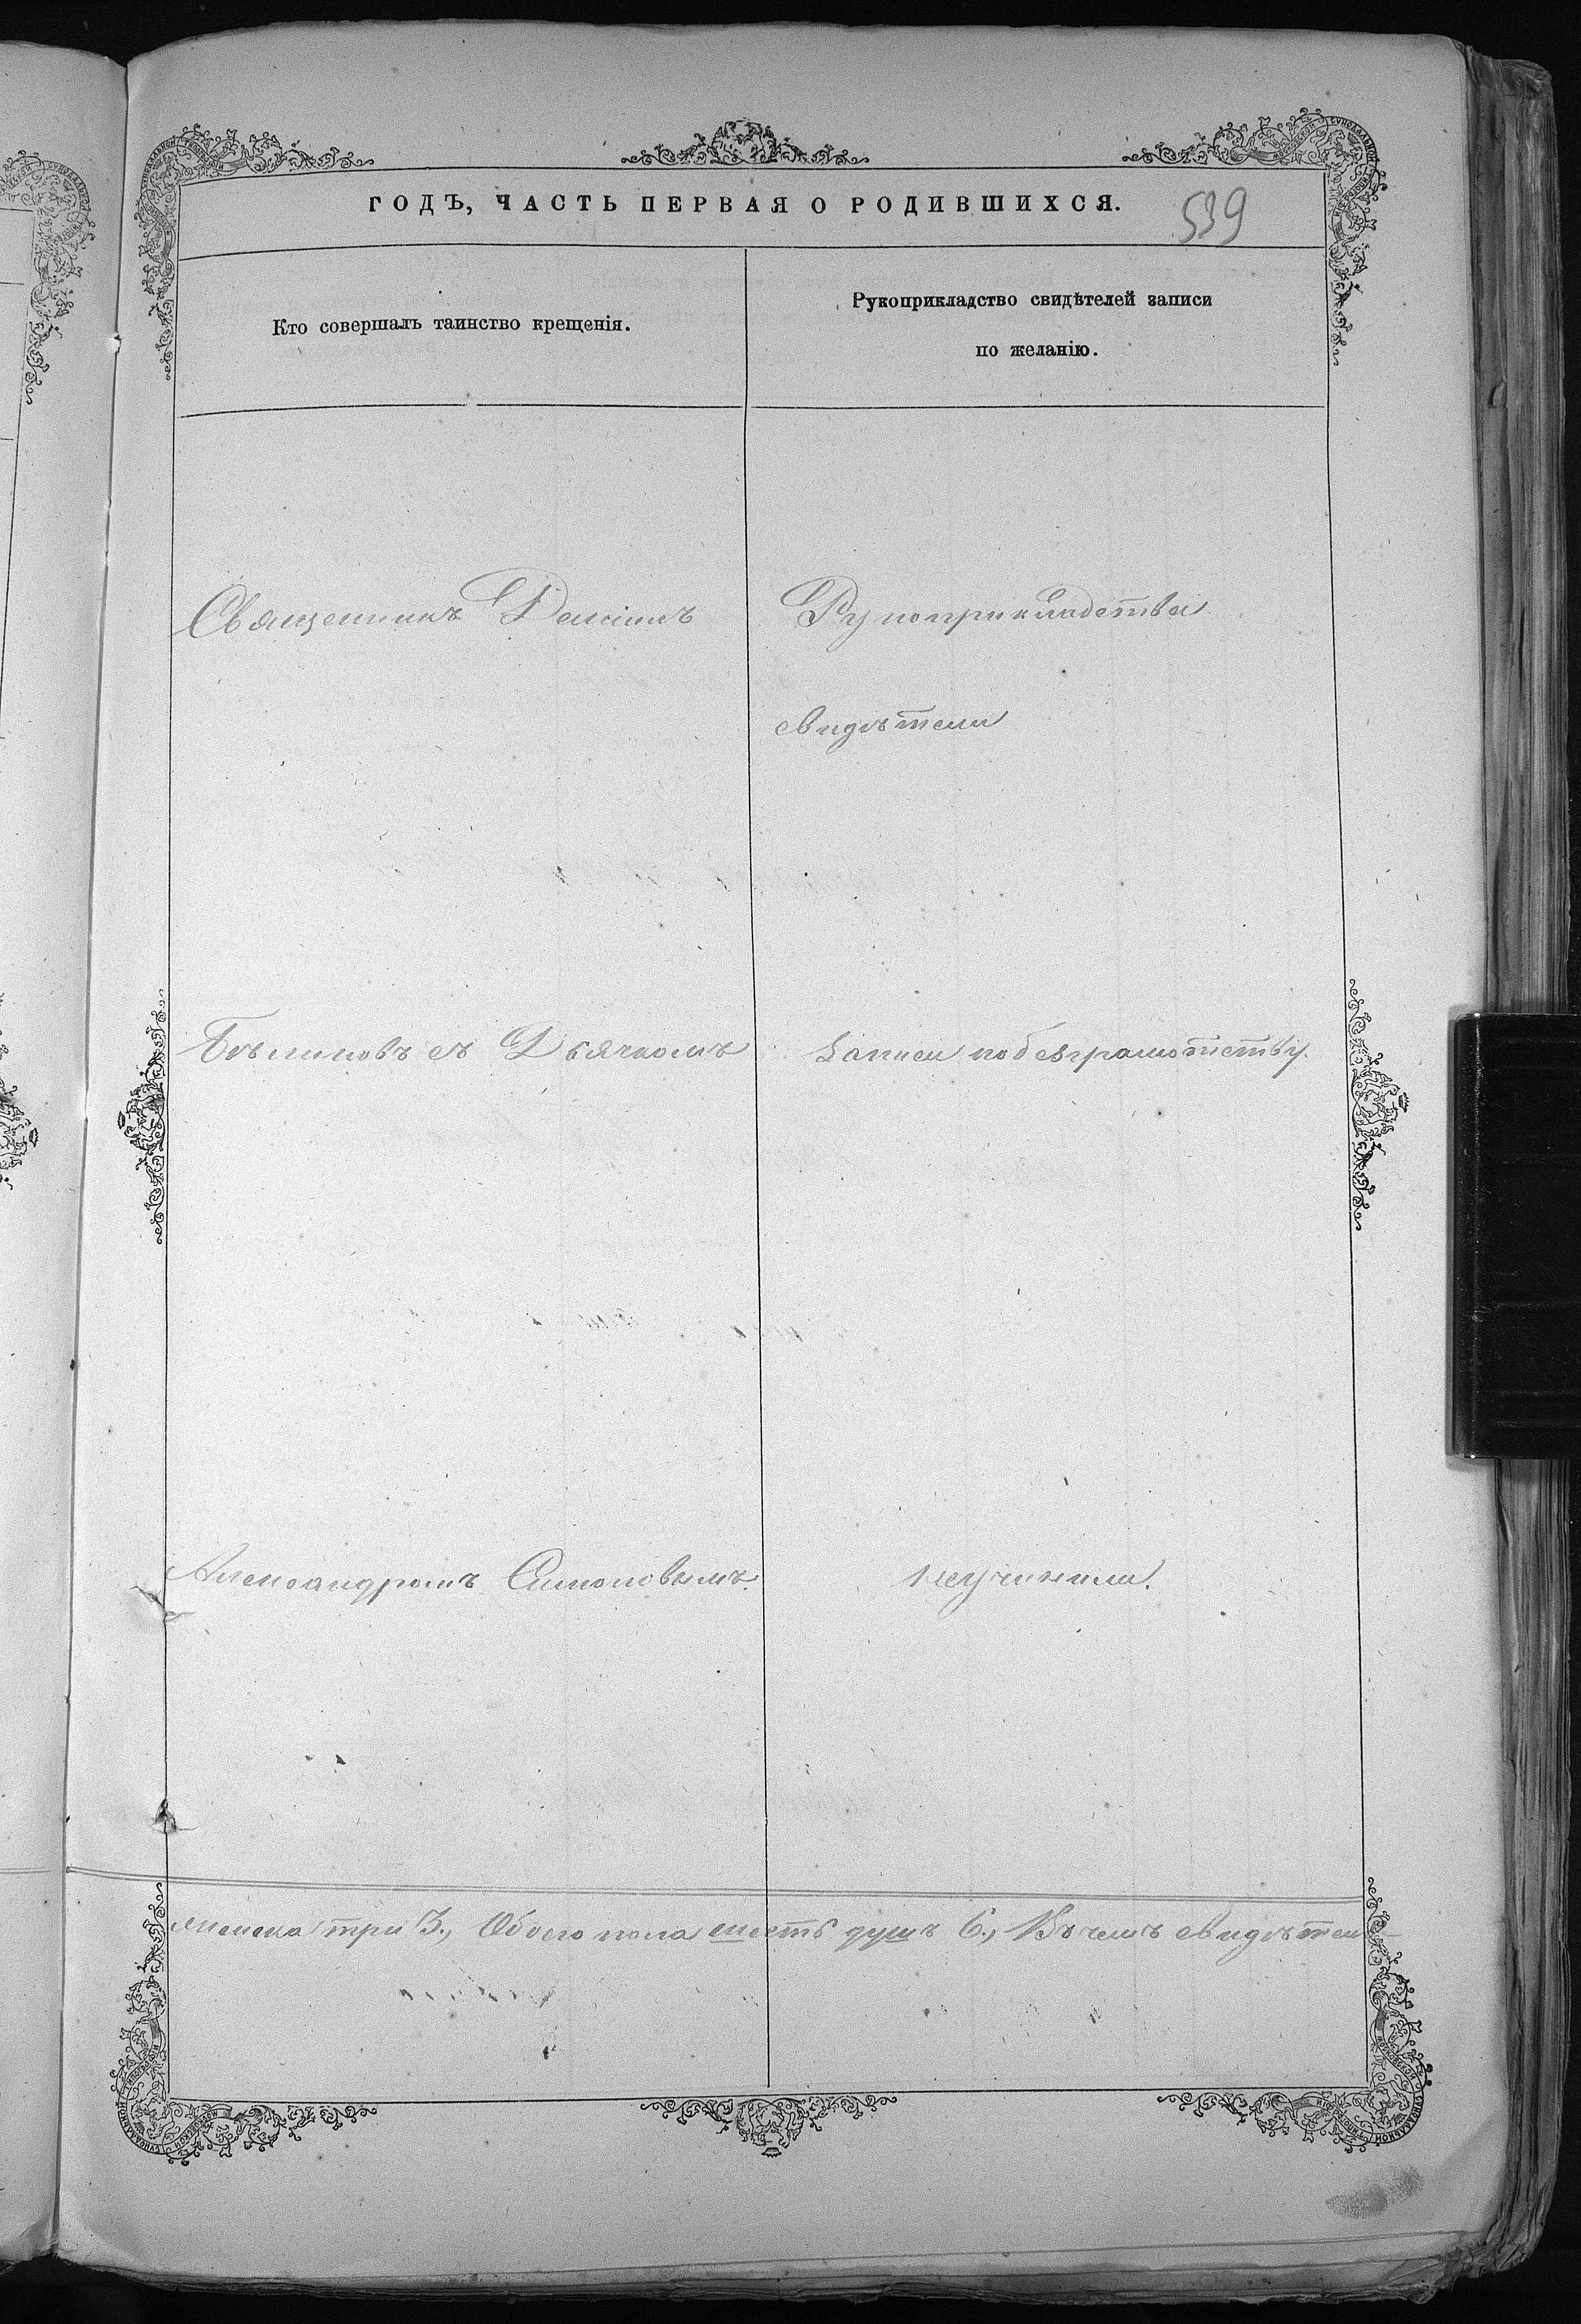 ГОДЪ, ЧАСТЬ ПЕРВАЯ О РОДИВШИХСЯ.
539
Кто совершалъ таинство крещенія.
Рукоприкладство свидѣтелей записи
по желанію.
Священникъ
Рукоприкладства
свидѣтели
Бѣликовъ съ Дьячкомъ
записи по безграмотству
Александромъ Симоновымъ.
неучинили.
женска три 3., Обоего пола шесть душъ 6., Въ чемъ свидѣтель-